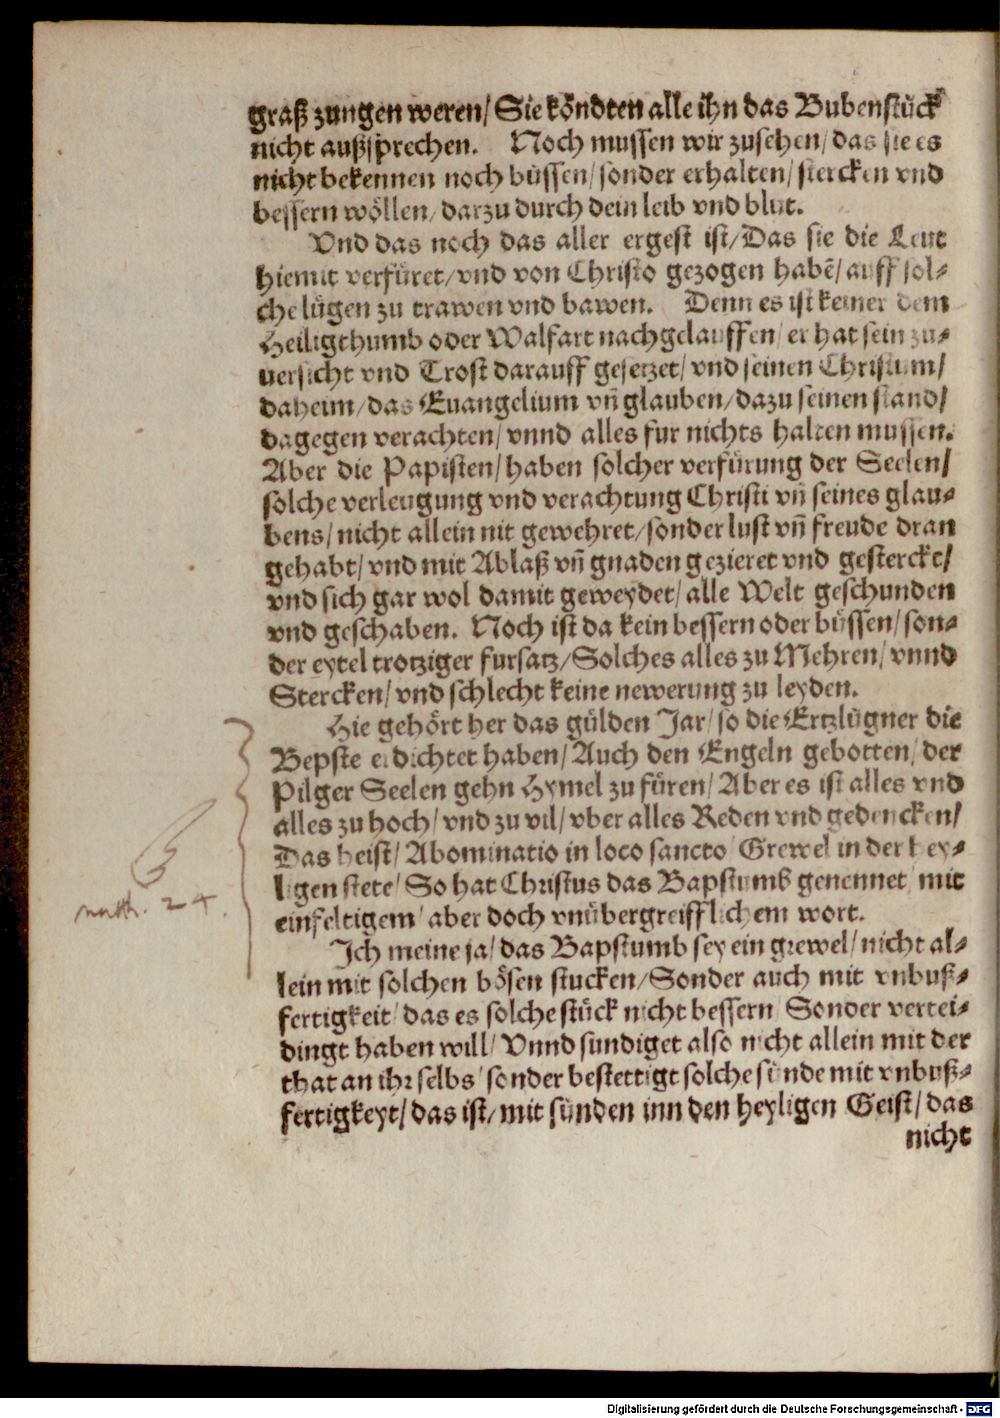 graß zungen weren/ Sie köndten alle ihn das Bubenstück
nicht außsprechen. Noch mussen wir zusehen/ das sie es
nicht bekennen noch büssen/ sonder erhalten/ stercken vnd
bessern wöllen/ darzu durch dein leib vnd blut.
Vnd das noch das aller ergest ist/ Das sie die Leut
hiemit verfüret/ vnd von Christo gezogen habē/ auff sol⸗
che lügen zu trawen vnd bawen. Denn es ist keiner dem
Heiligthumb oder Walfart nachgelauffen/ er hat sein zu⸗
uersicht vnd Trost darauff gesetzet/ vnd seinen Christum/
daheim/ das Euangelium vñ glauben/ dazu seinen stand/
dagegen verachten/ vnnd alles fur nichts halten mussen.
Aber die Papisten/ haben solcher verfürung der Seelen/
solche verleugung vnd verachtung Christi vñ seines glau⸗
bens/ nicht allein nit gewehret/ sonder lust vñ freude dran
gehabt/ vnd mit Ablaß vñ gnaden gezieret vnd gesterckt/
vnd sich gar wol damit geweydet/ alle Welt geschunden
vnd geschaben. Noch ist da kein bessern oder büssen/ son⸗
der eytel trotziger fursatz/ Solches alles zu Mehren/ vnnd
Stercken/ vnd schlecht keine newerung zu leyden.
Hie gehört her das gülden Jar/ so die Ertzlügner die
Bepste erdichtet haben/ Auch den Engeln gebotten/ der
Pilger Seelen gehn Hymel zu füren/ Aber es ist alles vnd
alles zu hoch/ vnd zu vil/ vber alles Reden vnd gedencken/
Das heist/ Abominatio in loco sancto Grewel in der hey⸗
ligen stete/ So hat Christus das Bapstumb genennet/ mit
einfeltigem/ aber doch vnübergreifflichem wort.
matth. 24.
Ich meine ja/ das Bapstumb sey ein grewel/ nicht al⸗
lein mit solchen bösen stucken/ Sonder auch mit vnbuß⸗
fertigkeit/ das es solche stück nicht bessern/ Sonder vertei⸗
dingt haben will/ Vnnd sundiget also nicht allein mit der
that an ihr selbs/ sonder bestettigt solche sünde mit vnbuß⸗
fertigkeyt/ das ist/ mit sünden inn den heyligen Geist/ das
nicht
Digitalisierung gefördert durch die Deutsche Forschungsgemeinschaft - DFG